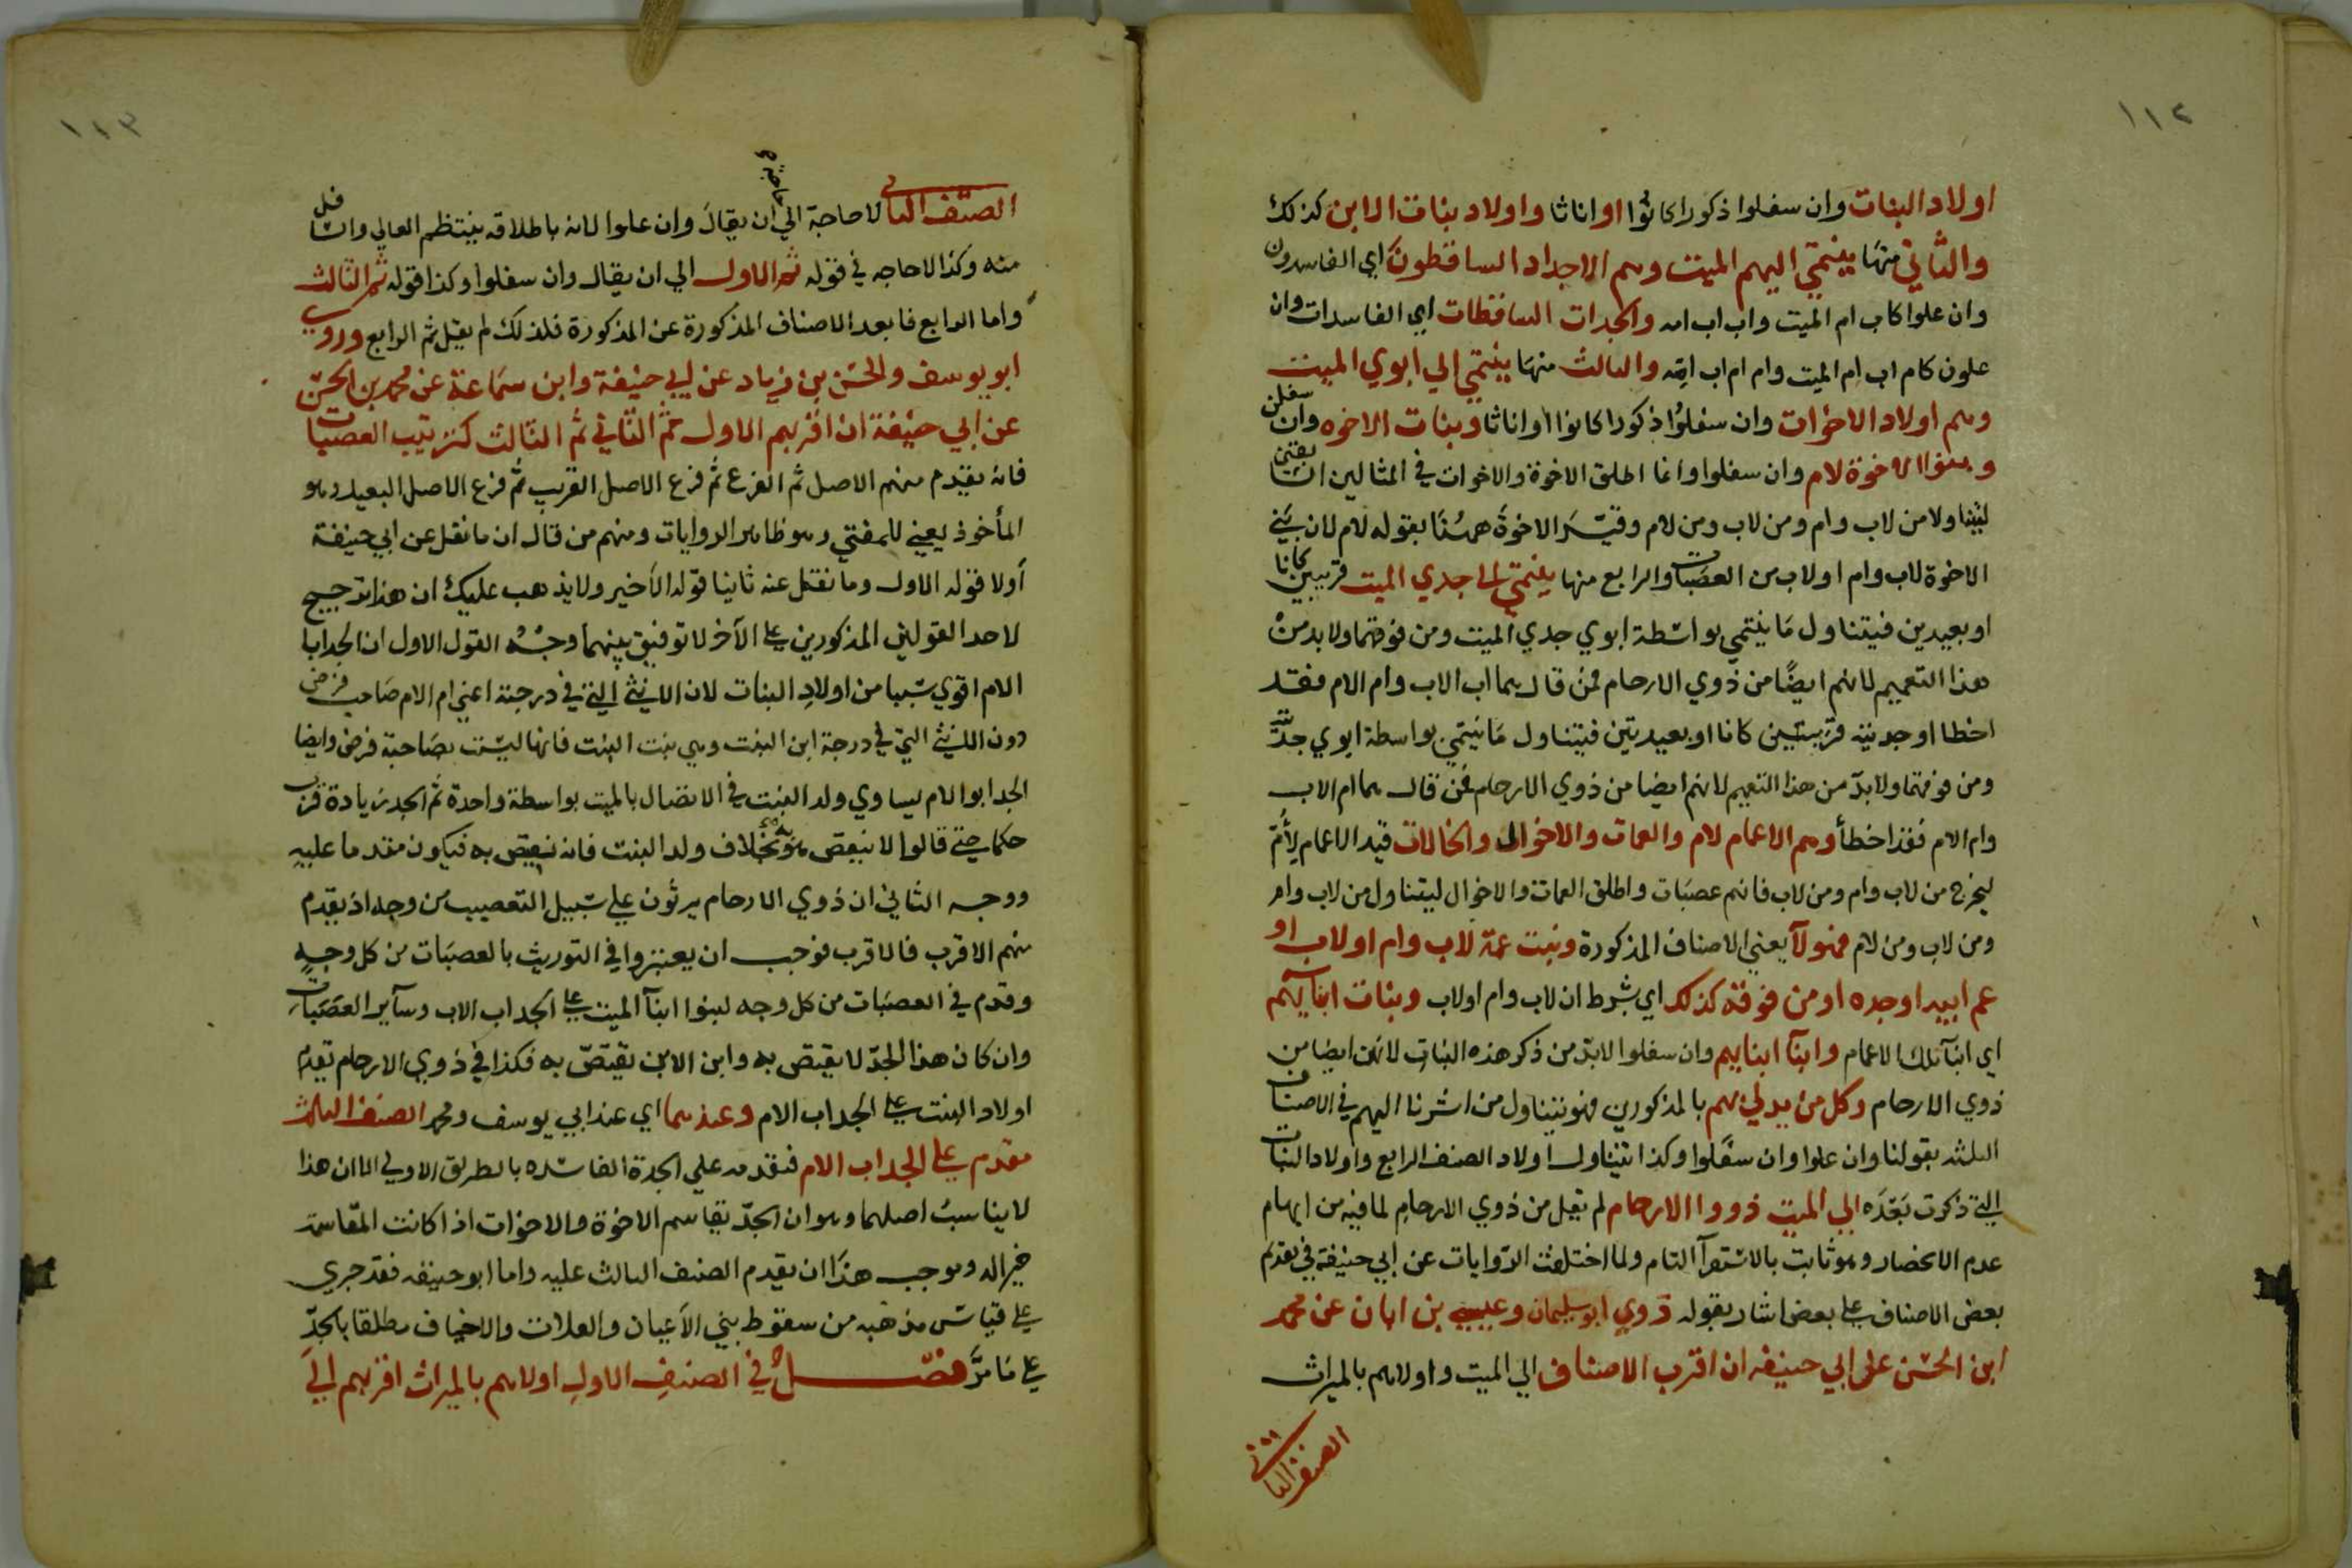 ١١٢
اولاد البنات وان سفلوا ذكورا كانوا او اناثا واولاد بنات الابن كذلك
والثاني منها ينتمي اليهم الميت وهم الاجداد الساقطون اي الفاسدون
وان علوا كاب ام الميت واب اب امه والجدات الساقطات اي الفاسدات وان
علون كام اب ام الميت وام ام اب امه والثالث منها ينتمي الي ابوي الميت
وهم اولاد الاخوات وان سفلوا ذكورا كانوا او اناثا وبنات الاخوه وان سفلن
وبنوا الاخوة لام وان سفلوا وانما اطلق الاخوة والاخوات في المثالين
ليتناولا من لاب وام ومن لاب ومن لام وقيد الاخوة ههنا بقوله لام لان بني
الاخوة لاب وام او لاب من العصبات والرابع منها ينتمي الي جدي الميت قريبين كانا
او بعيدين فيتناول ما ينتمي بواسطة ابوي جدي الميت ومن فوقهما ولابد من
هذا التعميم لانهم ايضا من ذوي الارحام فمن قال هما اب الاب وام الام فقد
اخطا او جدتيه قريبتين كانا او بعيدتين فيتناول ما ينتمي بواسطة ابوي جدته
ومن فوقهما ولابد من هذا التعميم لانهم ايضا من ذوي الارحام فمن قال هما ام الاب
وام الام فقد اخطأ وهم الاعمام لام والعمات والاخوال والخالات قيد الاعمام لام
ليخرج من لاب وام ومن لاب فانهم عصبات واطلق العمات والاخوال ليتناول من لاب وام
ومن لاب ومن لام فهولآ يعني الاصناف المذكورة وبنت عمة لاب وام او لاب او
عم ابيه او جده او من فوقه كذلك اي بشرط ان لاب وام او لاب وبنات ابنآيهم
اي ابنآ تلك الاعمام وابنآ ابنايهم وان سفلوا لابد من ذكر هذه البنات لانهن ايضا من
ذوي الارحام وكل من يدلي بهم بالمذكورين فهو يتناول من اشرنا اليهم في الاصناف
الثلثه بقولنا وان علوا وان سفلوا وكذا يتناول اولاد الصنف الرابع واولاد البنات
التي ذكرت بعده الي الميت ذووا الارحام لم يقل من ذوي الارحام لما فيه من ايهام
عدم الانحصار وهو ثابت بالاستقرآ التام ولما اختلفت الروايات عن ابي حنيفة في تقديم
بعض الاصناف علي بعض اشار بقوله فروي ابو سليمان وعيسي بن ابان عن محمد
ابن الحسن عن ابي حنيفه ان اقرب الاصناف الي الميت واولاهم بالميراث
الصنف الثاني
١١٣
الصنف الثاني لا حاجة الي ان يقال وان علوا لانه باطلاقه ينتظم العالي والسافل
منه وكذا لا حاجه في قوله ثم الاول الي ان يقال وان سفلوا وكذا قوله ثم الثالث
واما الرابع فابعد الاصناف المذكورة عن المذكورة فلذلك لم يقل ثم الرابع وروي
ابو يوسف والحسن بن زياد عن ابي حنيفة وابن سماعة عن محمد بن الحسن
عن ابي حنيفة ان اقربهم الاول ثم الثاني ثم الثالث كترتيب العصبات
فانه يقدم منهم الاصل ثم الفرع ثم فرع الاصل القريب ثم فرع الاصل البعيد وهو
المأخوذ يعني للمفتي وهو ظاهر الروايات ومنهم من قال ان ما نقل عن ابي حنيفة
أولا قوله الاول وما نقل عنه ثانيا قوله الاخير ولا يذهب عليك ان هذا ترجيح
لاحد القولين المذكورين علي الآخر لا توفيق بينهما وجه القول الاول ان الجد ابا
الام اقوي سببا من اولاد البنات لان الانثي التي في درجته اعني ام الام صاحب فرض
دون الانثي التي في درجة ابن البنت وهي بنت البنت فانها ليست بصاحبة فرض وايضا
الجد ابو الام يساوي ولد البنت في الاتصال بالميت بواسطة واحدة ثم للجد زيادة قرب
حكما حتي قالوا لا نقتص به بخلاف ولد البنت فانه نقتص به فيكون مقدما عليه
ووجه الثاني ان ذوي الارحام يرثون علي سبيل التعصيب من وجه اذ يقدم
منهم الاقرب فالاقرب فوجب ان يعتبروا في التوريث بالعصبات من كل وجه
وقدم في العصبات من كل وجه لبنوا ابنآ الميت علي الجد اب الاب وسآير العصبات
وان كان هذا الجد لا يقتص به وابن الابن يقتص به فكذا في ذوي الارحام تقدم
اولاد البنت علي الجد اب الام وعندهما اي عند ابي يوسف ومحمد الصنف الثالث
مقدم علي الجد اب الام فتقدمه علي الجدة الفاسده بالطريق الاولي الا ان هذا
لا يناسب اصلهما وهو ان الجد يقاسم الاخوة والاخوات اذا كانت المقاسمة
خير اله وموجب هذا ان يقدم الصنف الثالث عليه واما ابو حنيفه فقد جري
علي قياس مذهبه من سقوط بني الاعيان والعلات والاخياف مطلقا بالجد
علي ما مر فصل في الصنف الاول اولاهم بالميراث اقربهم الي